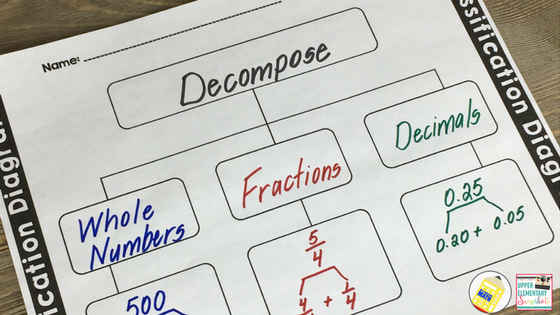 Name:
Decompose
Whole
Numbers
Fractions
Decimals
500
5/4
4/4 + 1/4
0.25
0.20 + 0.05
ssification Diagr
ication Diagra
MATH
UPPER
ELEMENTARY
Snapshots